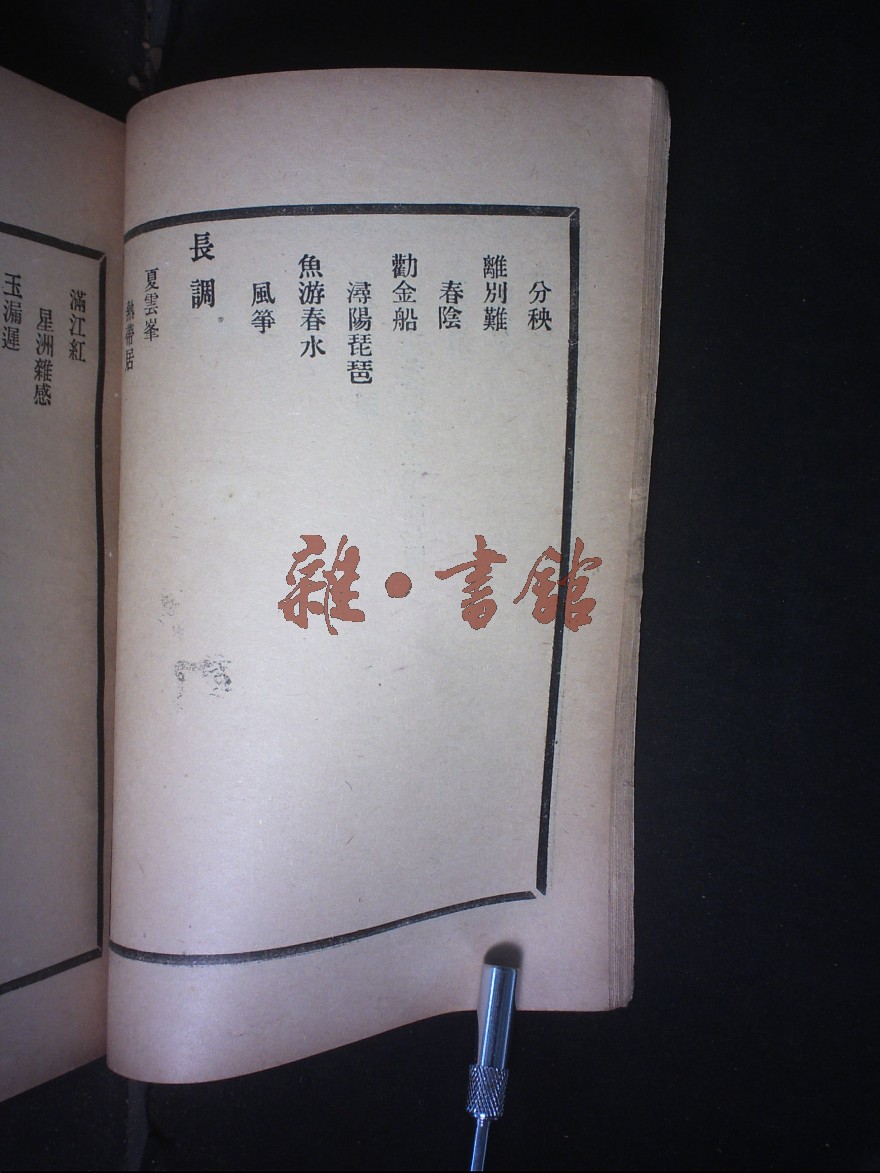 分秧
離別難
春陰
勸金船
潯陽琵琶
魚游春水
風箏
長調
夏雲峯
熱帶居
滿江紅
星洲雜感
玉漏遲
雜·書館